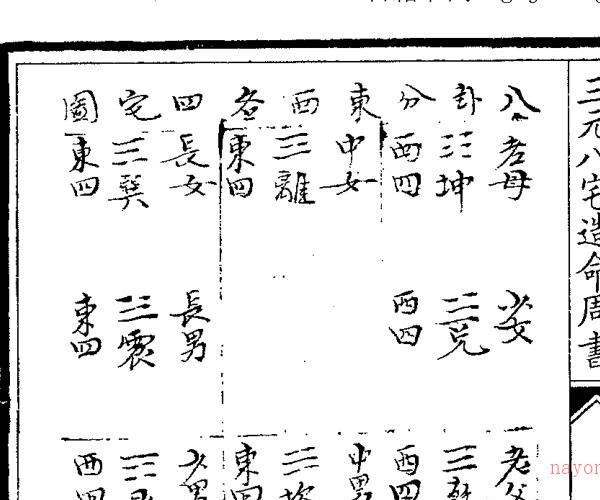 三元八宅造命周書
八卦分東西各四宅圖
老母
☷坤
西四
中女
☲離
東四
長女
☴巽
東四
少女
☱兌
西四
長男
☳震
東四
老
☰乾
西四
中男
☵坎
東四
少男
☶艮
西四
nayon